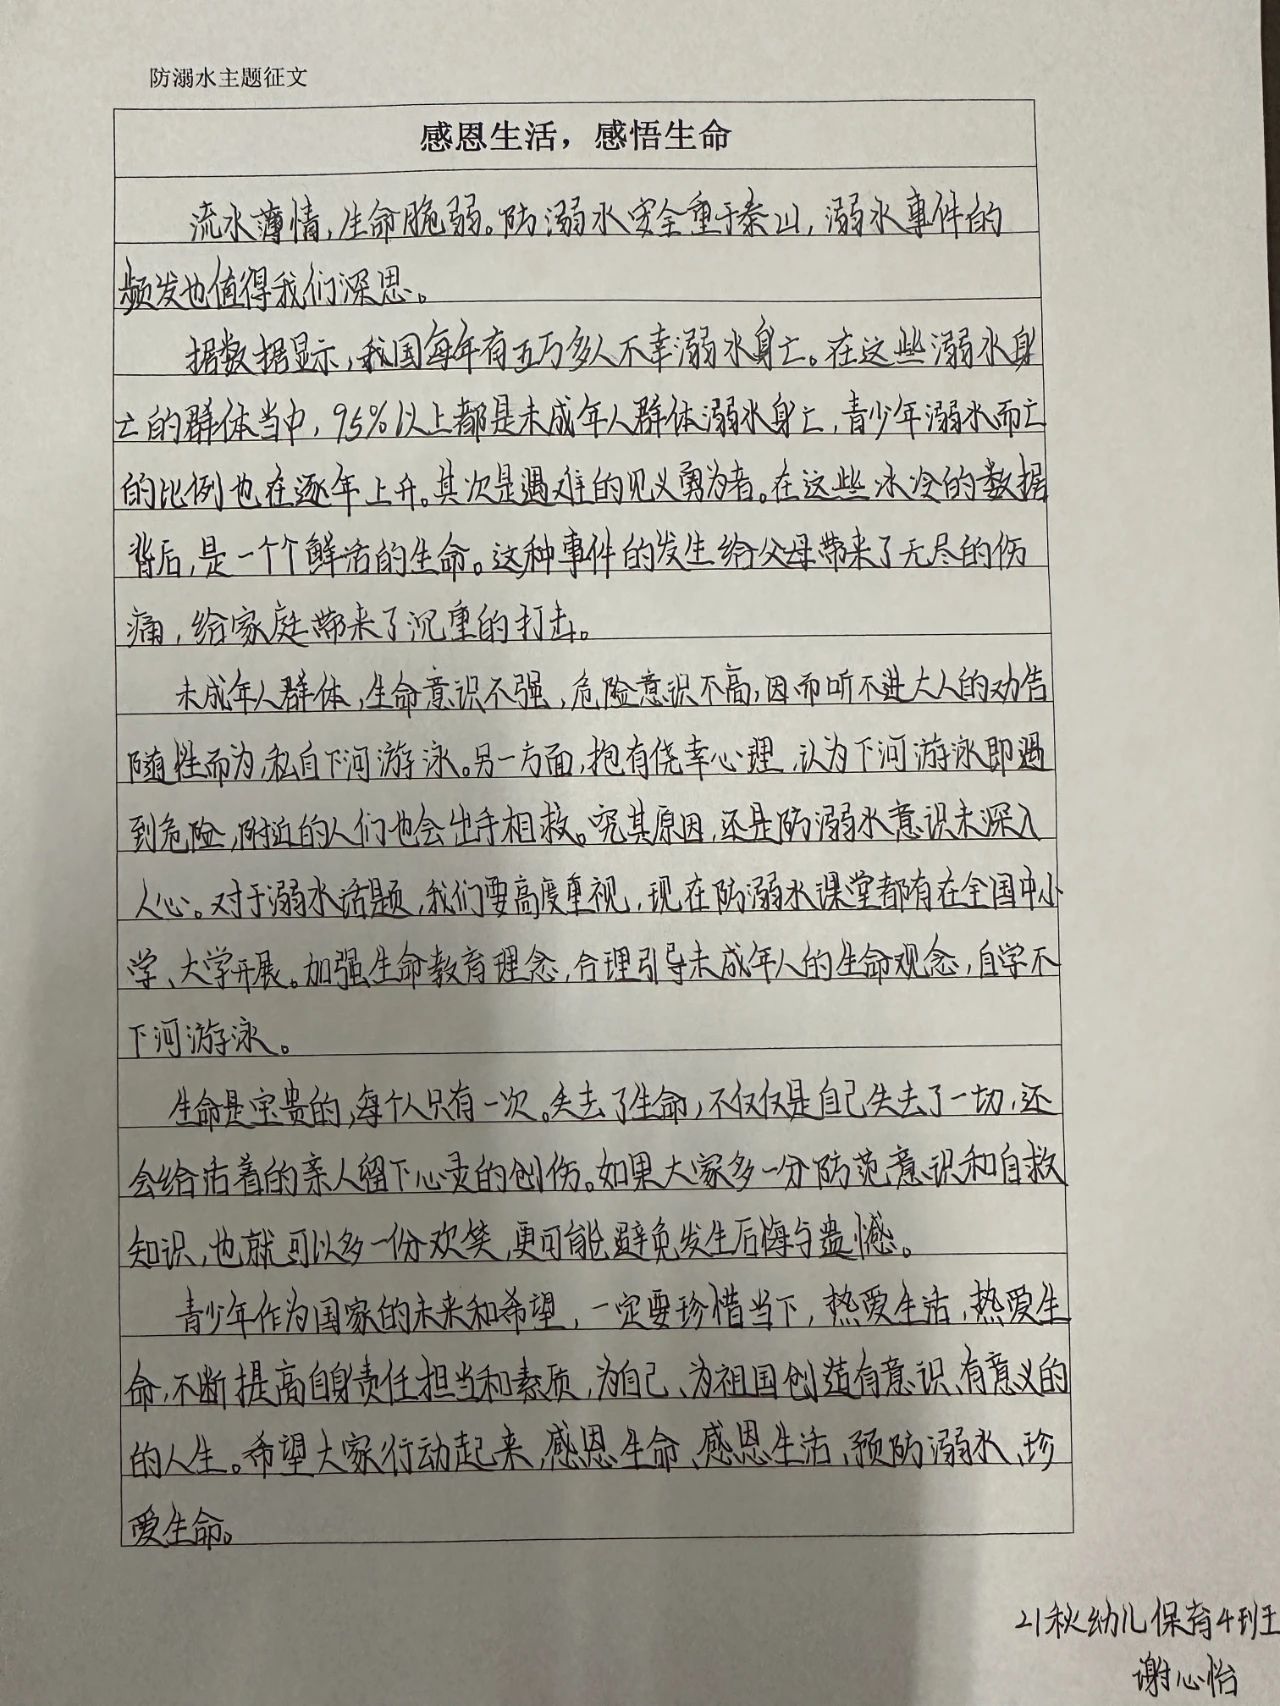 防溺水主题征文
感恩生活，感悟生命
流水薄情，生命脆弱。防溺水安全重于泰山，溺水事件的
频发也值得我们深思。
据数据显示，我国每年有五万多人不幸溺水身亡。在这些溺水身
亡的群体当中，95%以上都是未成年人群体溺水身亡，青少年溺水而亡
的比例也在逐年上升。其次是遇难的见义勇为者。在这些冰冷的数据
背后，是一个个鲜活的生命。这种事件的发生给父母带来了无尽的伤
痛，给家庭带来了沉重的打击。
未成年人群体，生命意识不强，危险意识不高，因而听不进大人的劝告
随性而为，私自下河游泳。另一方面，抱有侥幸心理，认为下河游泳即遇
到危险，附近的人们也会出手相救。究其原因，还是防溺水意识未深入
人心。对于溺水话题，我们要高度重视，现在防溺水课堂都有在全国中小
学、大学开展。加强生命教育理念，合理引导未成年人的生命观念，自学不
下河游泳。
生命是宝贵的，每个人只有一次。失去了生命，不仅仅是自己失去了一切，还
会给活着的亲人留下心灵的创伤。如果大家多一分防范意识和自救
知识，也就可以多一份欢笑，更可能避免发生后悔与遗憾。
青少年作为国家的未来和希望，一定要珍惜当下，热爱生活，热爱生
命，不断提高自身责任担当和素质，为自己、为祖国创造有意识、有意义的
的人生。希望大家行动起来，感恩生命、感恩生活、预防溺水、珍
爱生命。
21秋幼儿保育4班
谢心怡